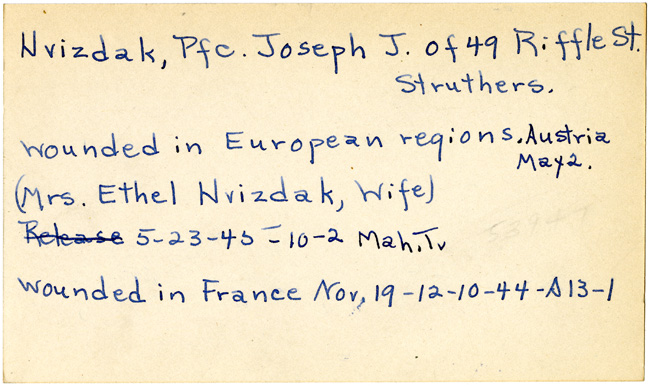 Hvizdak, Pfc. Joseph J. of 49 Riffle St.
Struthers.
wounded in European regions. Austria
May 2.
(Mrs. Ethel Hvizdak, Wife)
Release 5-23-45-10-2 Mah. Tv
wounded in France Nov, 19-12-10-44-A13-1